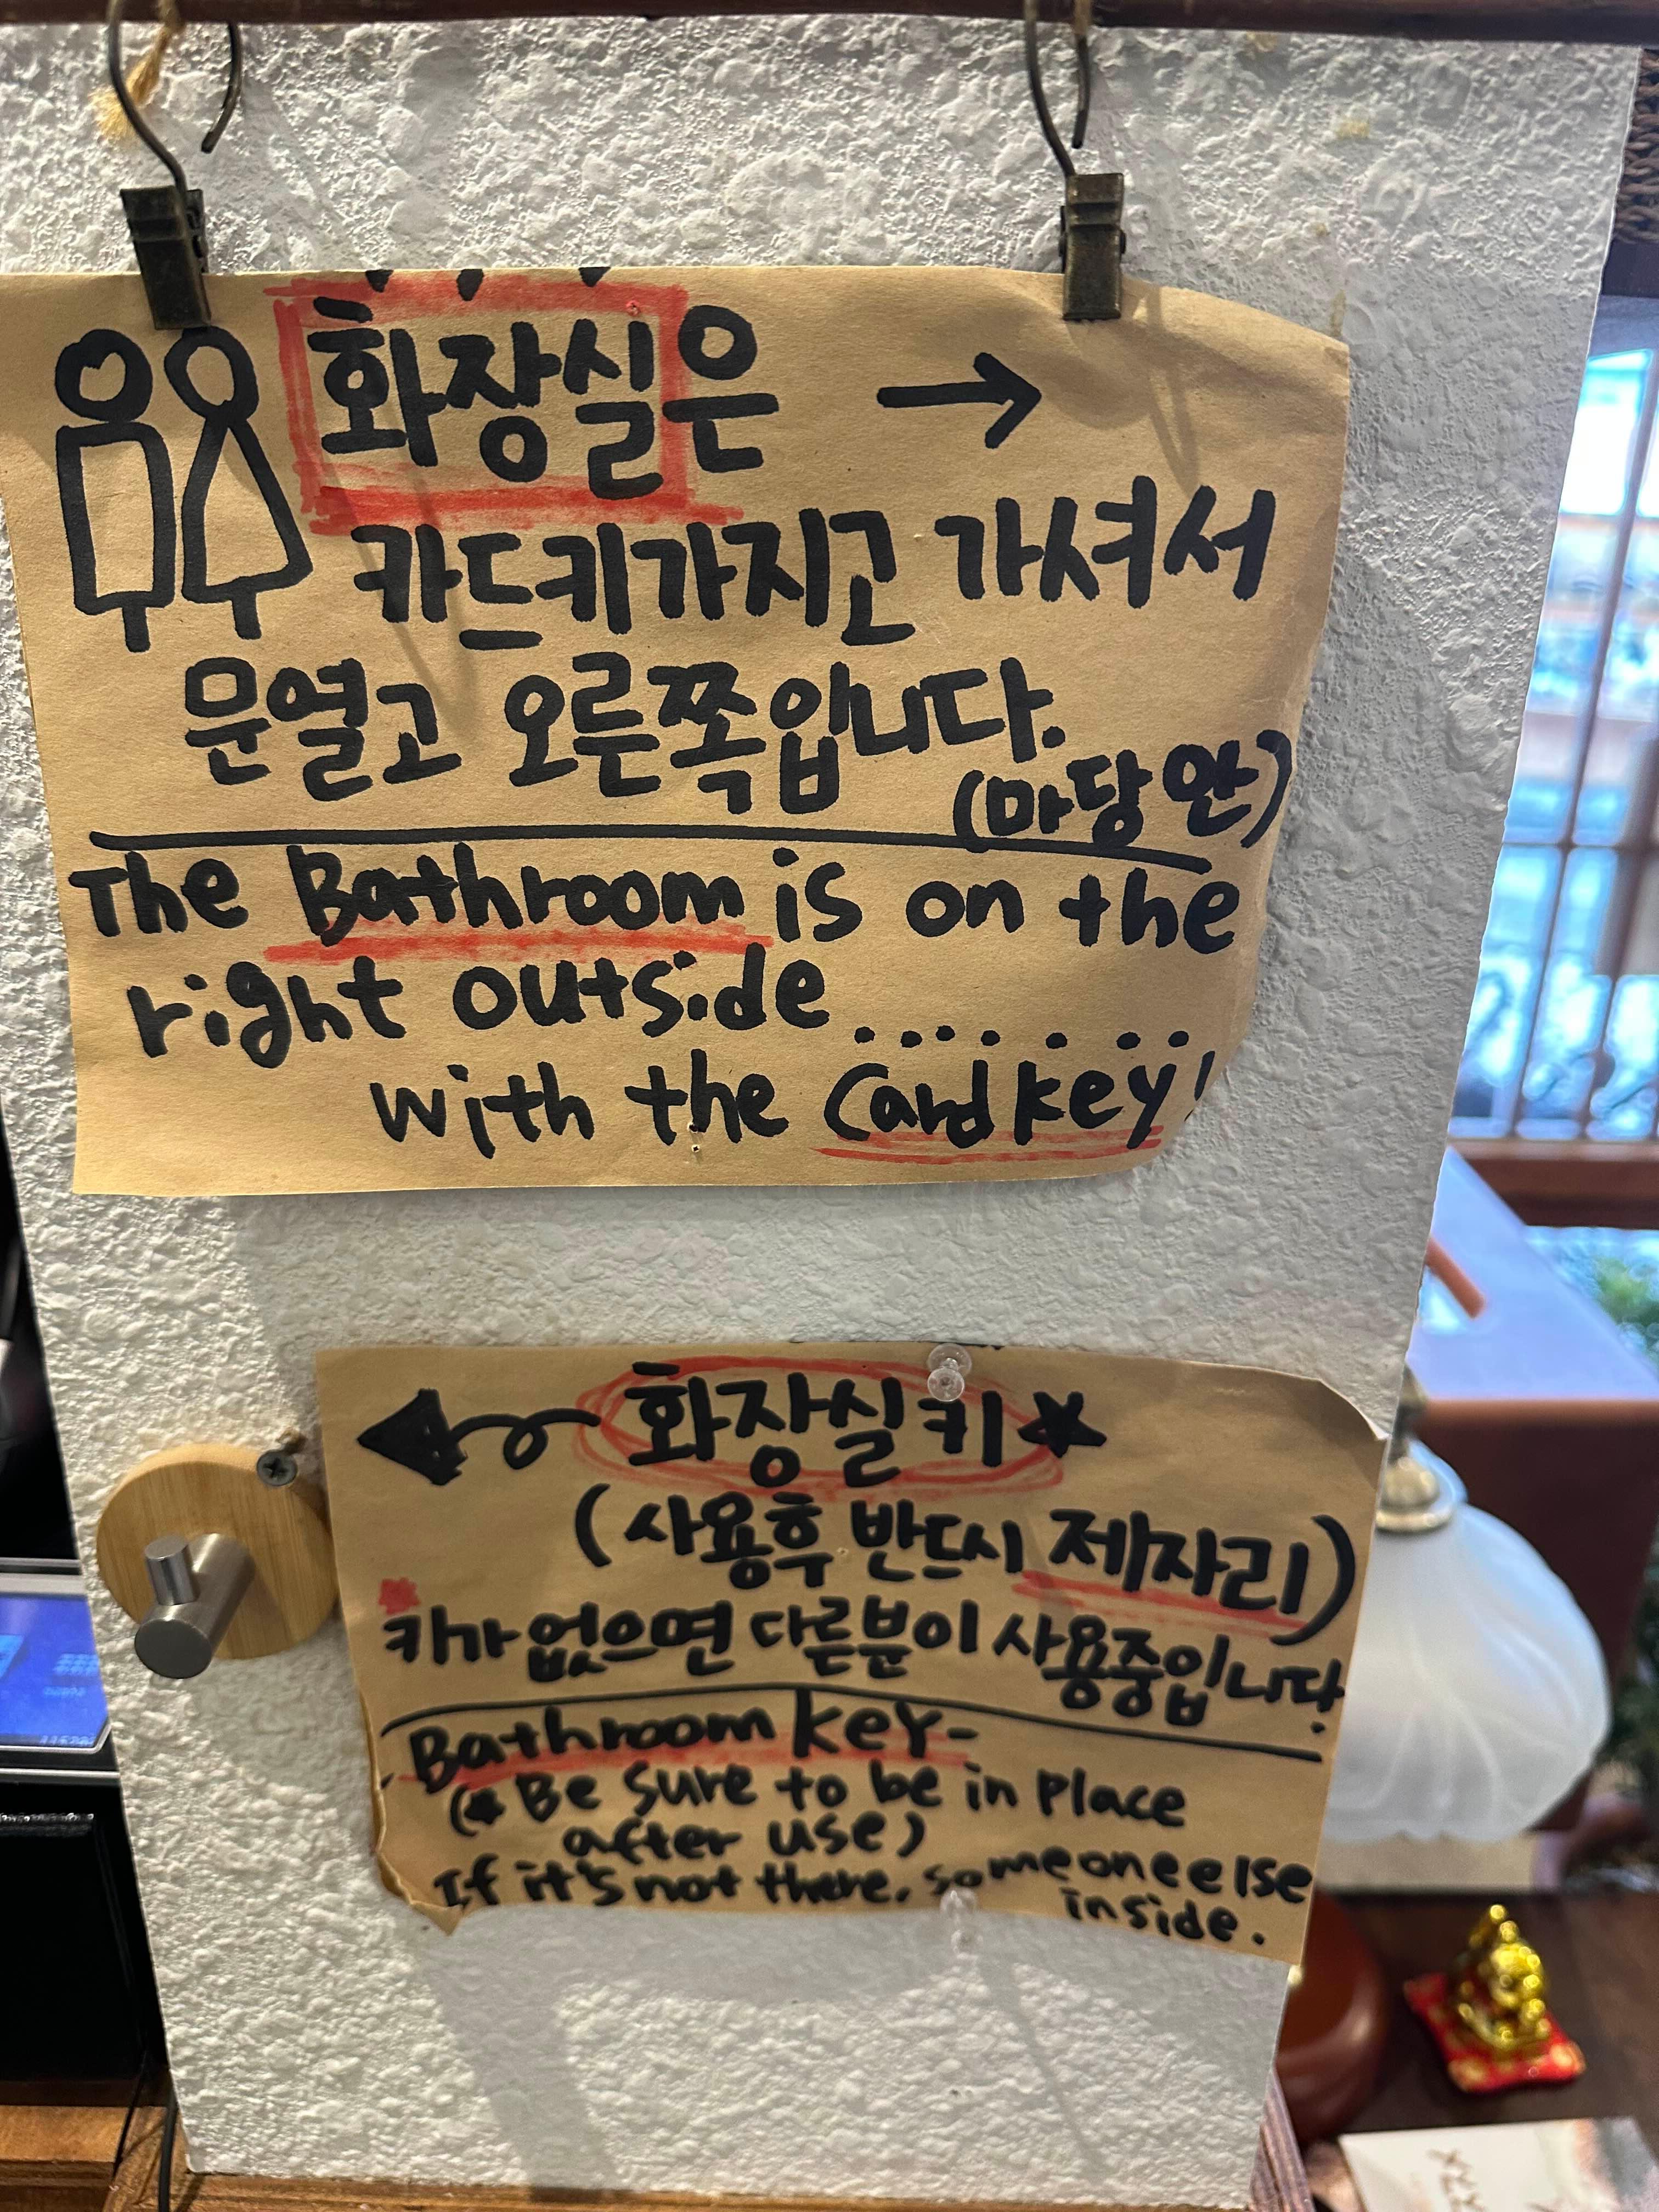 화장실은 →
카드키가지고 가셔서
문열고 오른쪽입니다.
(마당 안)
The Bathroom is on the
right outside.......
with the Card key!
화장실키★
(사용후 반드시 제자리)
키가 없으면 다른분이 사용중입니다.
Bathroom key-
(★ Be sure to be in place
after use)
If it's not there, someone else
inside.